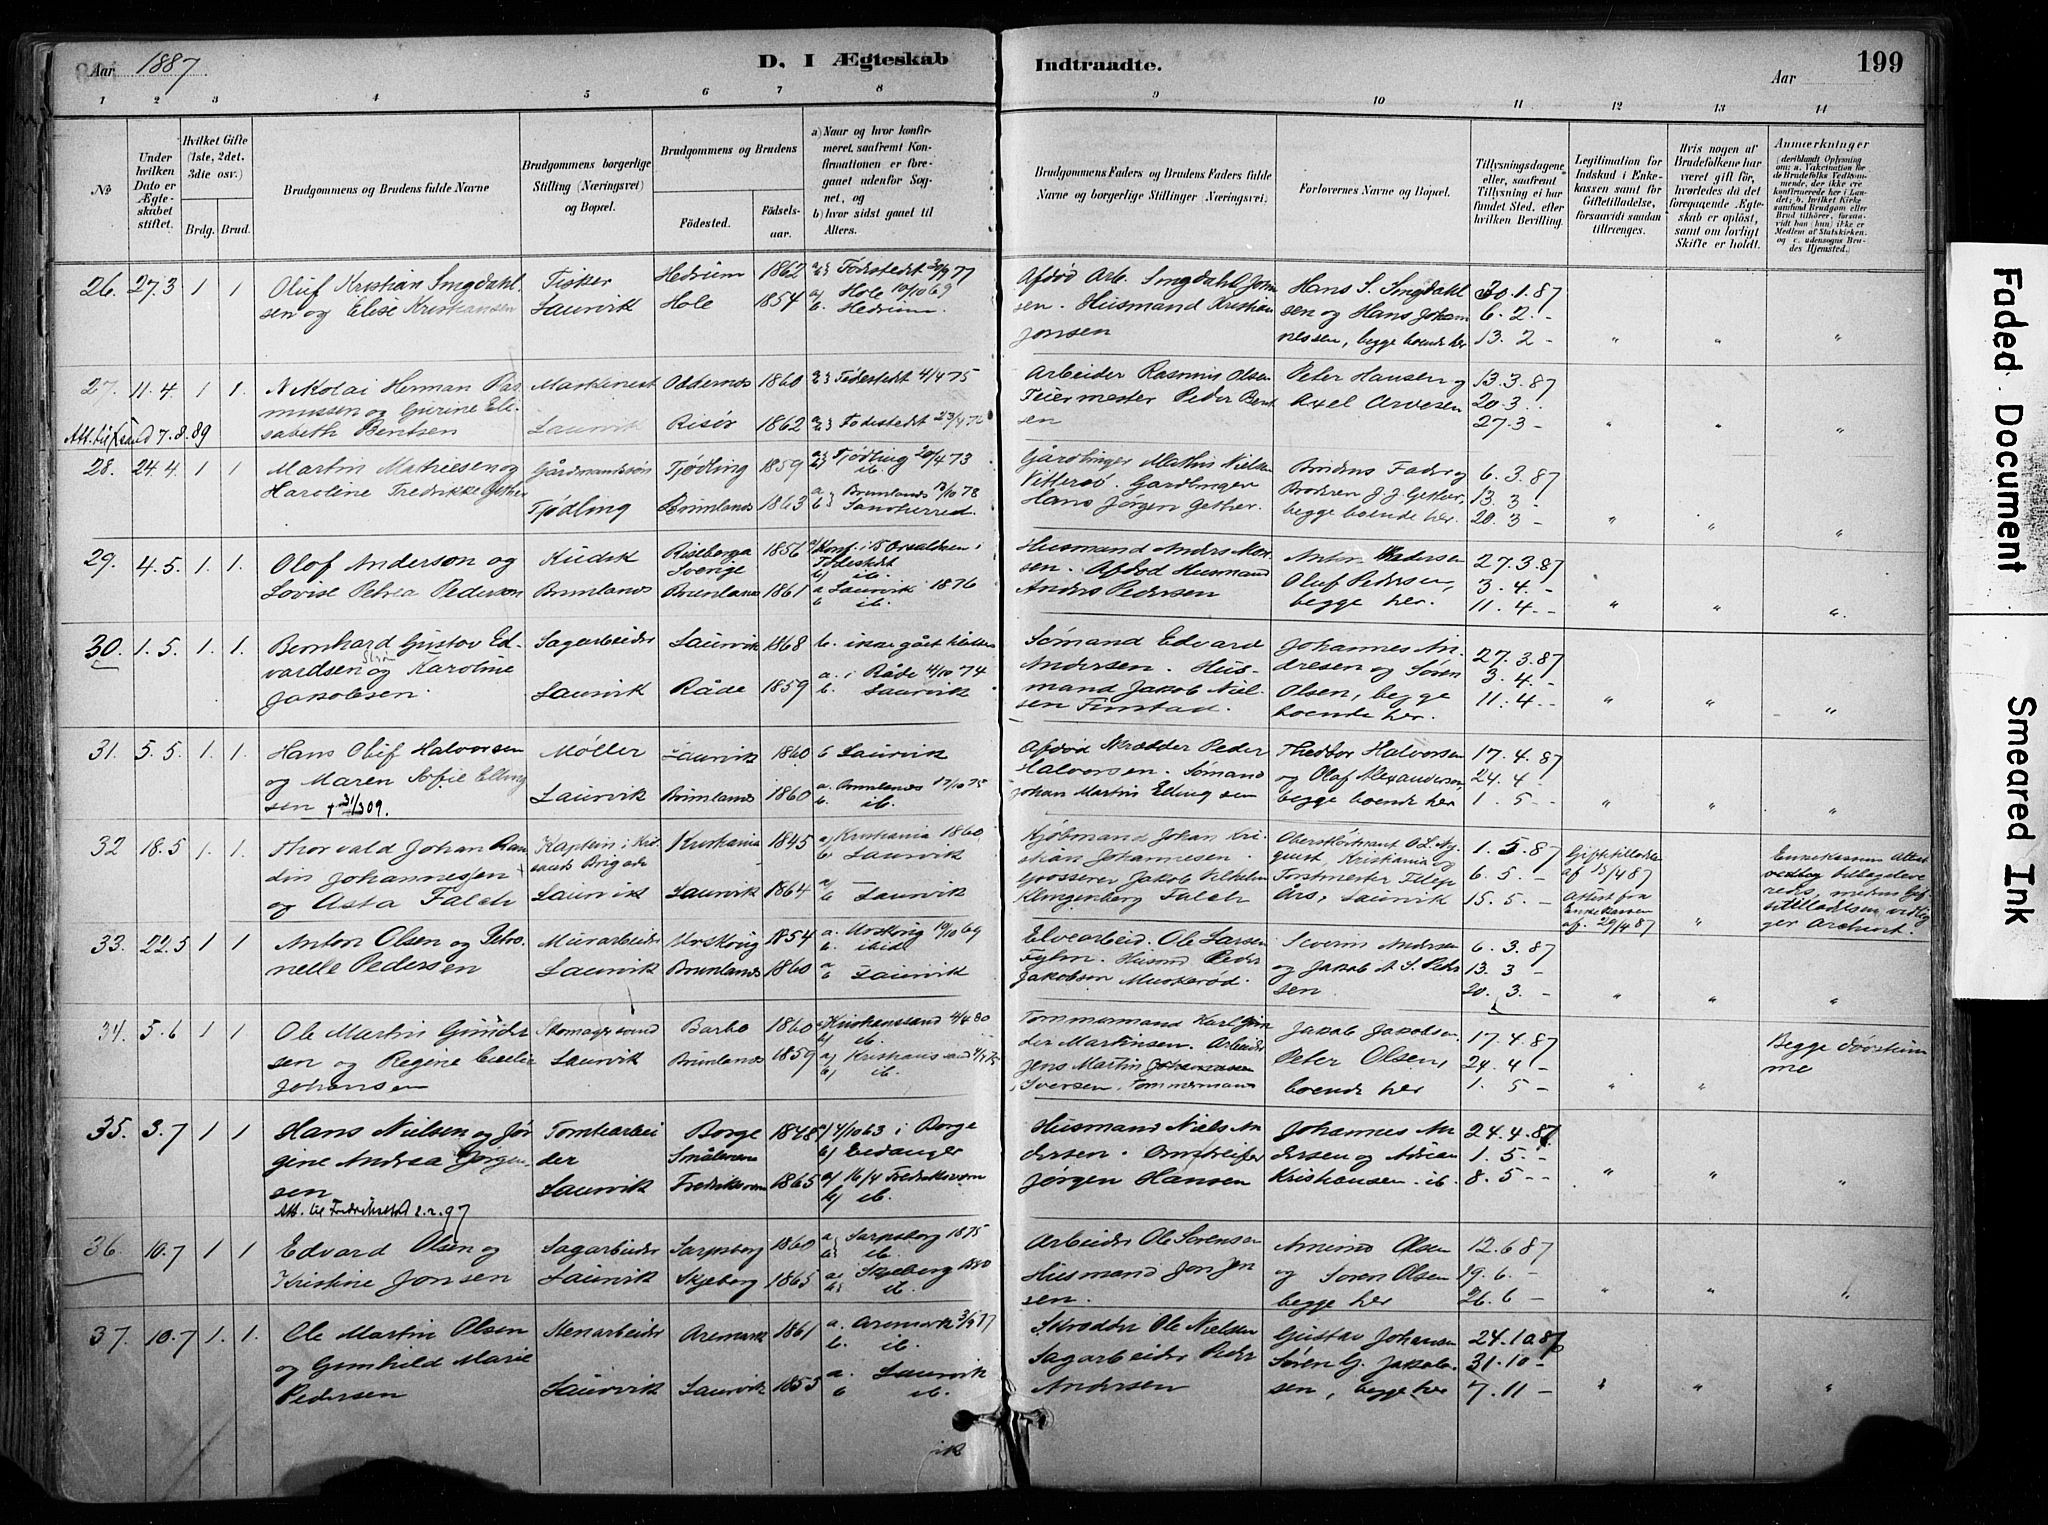 Aar 1887
D. I Ægteskab
Indtraadte.
Aar
199
1 2 3 4 5 6 7 8 9 10 11 12 13 14
No
Under hvilken Dato er Ægteskabet stiftet.
Hvilket Gifte (1ste, 2det, 3die osv.)
Brdg. Brud.
Brudgommens og Brudens fulde Navne
Brudgommens borgerlige Stilling (Næringsvei) og Bopæl.
Brudgommens og Brudens
Fødested.
Fødselsaar.
a) Naar og hvor konfirmeret, saafremt Konfirmationen er foregaaet udenfor Sognet, og
b) hvor sidst gaaet til Alters.
Brudgommens Faders og Brudens Faders fulde Navne og borgerlige Stillinger (Næringsvei).
Forlovernes Navne og Bopæl.
Tillysningsdagene, eller, saafremt Tillysning ei har fundet Sted, efter hvilken Bevilling.
Legitimation for Indskud i Enkekassen samt for Giftetilladelse, forsaavidt saadan tiltrænges.
Hvis nogen af Brudefolkene har været gift før, hvorledes da det foregaaende Ægteskab er opløst, samt om lovligt Skifte er holdt.
Anmærkninger
26. 27.3 1 1 Oluf Kristian Smgdahlsen og Elise Kristiansen
Fisker Laurvik
Hedrum 1862 Fødestedt 30/9 77
Hole 1854 a) Hole 10/10 69 b. Hedrum.
Afdød Arb. Smgdahl Jonsen. Husmand Kristian Jonsen
Hans S. Smgdahlsen og Hans Johannessen, begge boende her
30.1.87
6.2.-
13.2-
27. 11.4 1 1. Nikolai Herman Rasmussen og Gurine Elisabeth Bentsen
Laurvik
Oddernes 1860 Fødestedt 4/4 75
Risør 1862 Fødestedt
Arbeider Rasmus Olsen
Feiermester Peder Bentsen
Peter Hansen og Axel Arvesen
13.3.87
20.3..
27.3-
7.8.89
28. 24.4 1 1 Martin Mathiesen og Haroline Fredrikke Gether
Gårdmandssøn Tjødling
Tjødling 1859 Tjødling 20/4 73 ib.
Brunlanes 1863 a. Brunlanes 13/10 78 b. Sandherred.
Gårdbruger Mathis Nielsen
Gardbruger Hans Jørgen Gether.
Brudens Fader og Broderen J. J. Gether, begge boende her.
6.3.87
13.3-
20.3-
29. 4.5. 1. 1. Olof Anderson og Lovise Petrea Pederson
Kudsk Brunlanes
Riseberga Sverige 1856
Fødestedt b) ib.
Brunlanes 1861 a Laurvik 1876 b ib.
Husmand Anders
Afdød Husmand Anders Pedersen
Anton Pedersen
Oluf Pedersen, begge her.
27.3.87
3.4.-
11.4.-
30. 1.5. 1. 1. Bernhard Gustav Edvardsen og Karoline Jakobsen.
Sagarbeider Laurvik
Laurvik 1868 b. ikke gået til alters
Råde 1859 a. i Råde 4/10 74 b. Laurvik
Sømand Edvard Andersen. Husmand Jakob Nielsen Finstad.
Johannes Andresen og Søren Olsen, begge boende her.
27.3.87
3.4.-
11.4--
31. 5.5. 1. 1. Hans Oluf Halvorsen og Maren Sofie Ellingsen
Møller Laurvik
Laurvik 1860 b Laurvik
Brunlanes 1860 a. Brunlanes 17/10 75 b. ib.
Afdød Skrædder Peder Halvorsen. Sømand Johan Martin Ellingsen
Thedbor Halvorsen og Olaf Alexandersen, begge boende her
17.4.87
24.4-
1.5--
32 18.5 1. 1. Thorvald Johan Randin Johannessen og Asta Falch
Laurvik
Kristiania 1845 a) Kristiania 1860 b Laurvik
Laurvik 1864 a) b Laurvik
Kjøbmand Johan Kristian Johannesen.
Grosserer Jakob Vilhelm Klingenberg Falch
Kristiania og Forstmester Filip Års, Laurvik
1.5.87
6.5.-
15.5.-
Giftetilladelse af 15/4 87
Attest fra Enkekassen af. 29/4 87
33. 22.5 1 1 Anton Olsen og Petronelle Pedersen
Murarbeider Laurvik
Urskoug 1854 a. Urskoug 10/10 69 b. ibid
Brunlanes 1860 a b Laurvik
Elvearbeid. Ole Larsen
Husmd Peder Jakobsen Muskerød.
Severin Andersen og Jakob A. S. Pedersen.
6.3.87
13.3-
20.3.-
34. 5.6 1 1 Ole Martin Gundersen og Regine Johansen
Skomagersvend Laurvik
Barbo 1860 Kristianssand 4/4 80 b) ib.
Brunlanes 1859 a) Kristianssand b) ib.
Tømmermand Karl Gunder Martinsen. Arbeider Jens Martin Iversen, Tømmermand
Jakob Jakobsen
Peter Olsen, boende her
17.4.87
24.4-
1.5-
Begge døvstumme
35. 3.7 1 1 Hans Nielsen og Jørgine Andrea Jørgensen
Att. til Fredrikstad 2.2.97
Tomtearbeider Laurvik
Borge Smålenene 1848 a) 4/10 63 i Borge b) Eidanger
Fredriksværn 1865 a) 16/4 Fredriksværn b) ib.
Husmand Niels Andersen.
Jørgen Hansen
Johannes Andersen og Adrian Kristiansen ib.
24.4.87
1.5.-
8.5--
36. 10.7 1 1 Edvard Olsen og Kristine Jonsen
Sagarbeider Laurvik
Sarpsborg 1860 a) Sarpsborg 1875 b) ib.
Skjeberg 1865 a) Skjeberg 1880 b) ib.
Arbeider Ole Sørensen
Husmand Jon Jonsen.
Amund Olsen og Søren Olsen begge her
12.6.87
19.6.-
26.6-
37. 10.7 1. 1. Ole Martin Olsen og Gunhild Marie Pedersen
Stenarbeider Laurvik
Aremark 1861 a. Aremark 3/9 77 b. ib.
Laurvik 1855 a. Laurvik b ib.
Skrædder Ole Nielsen
Sagarbeider Peder Andersen
Gustav Johansen
Søren G. Jakobsen, begge her
24.10.87
31.10-
7.11-
Faded Document
Smeared Ink